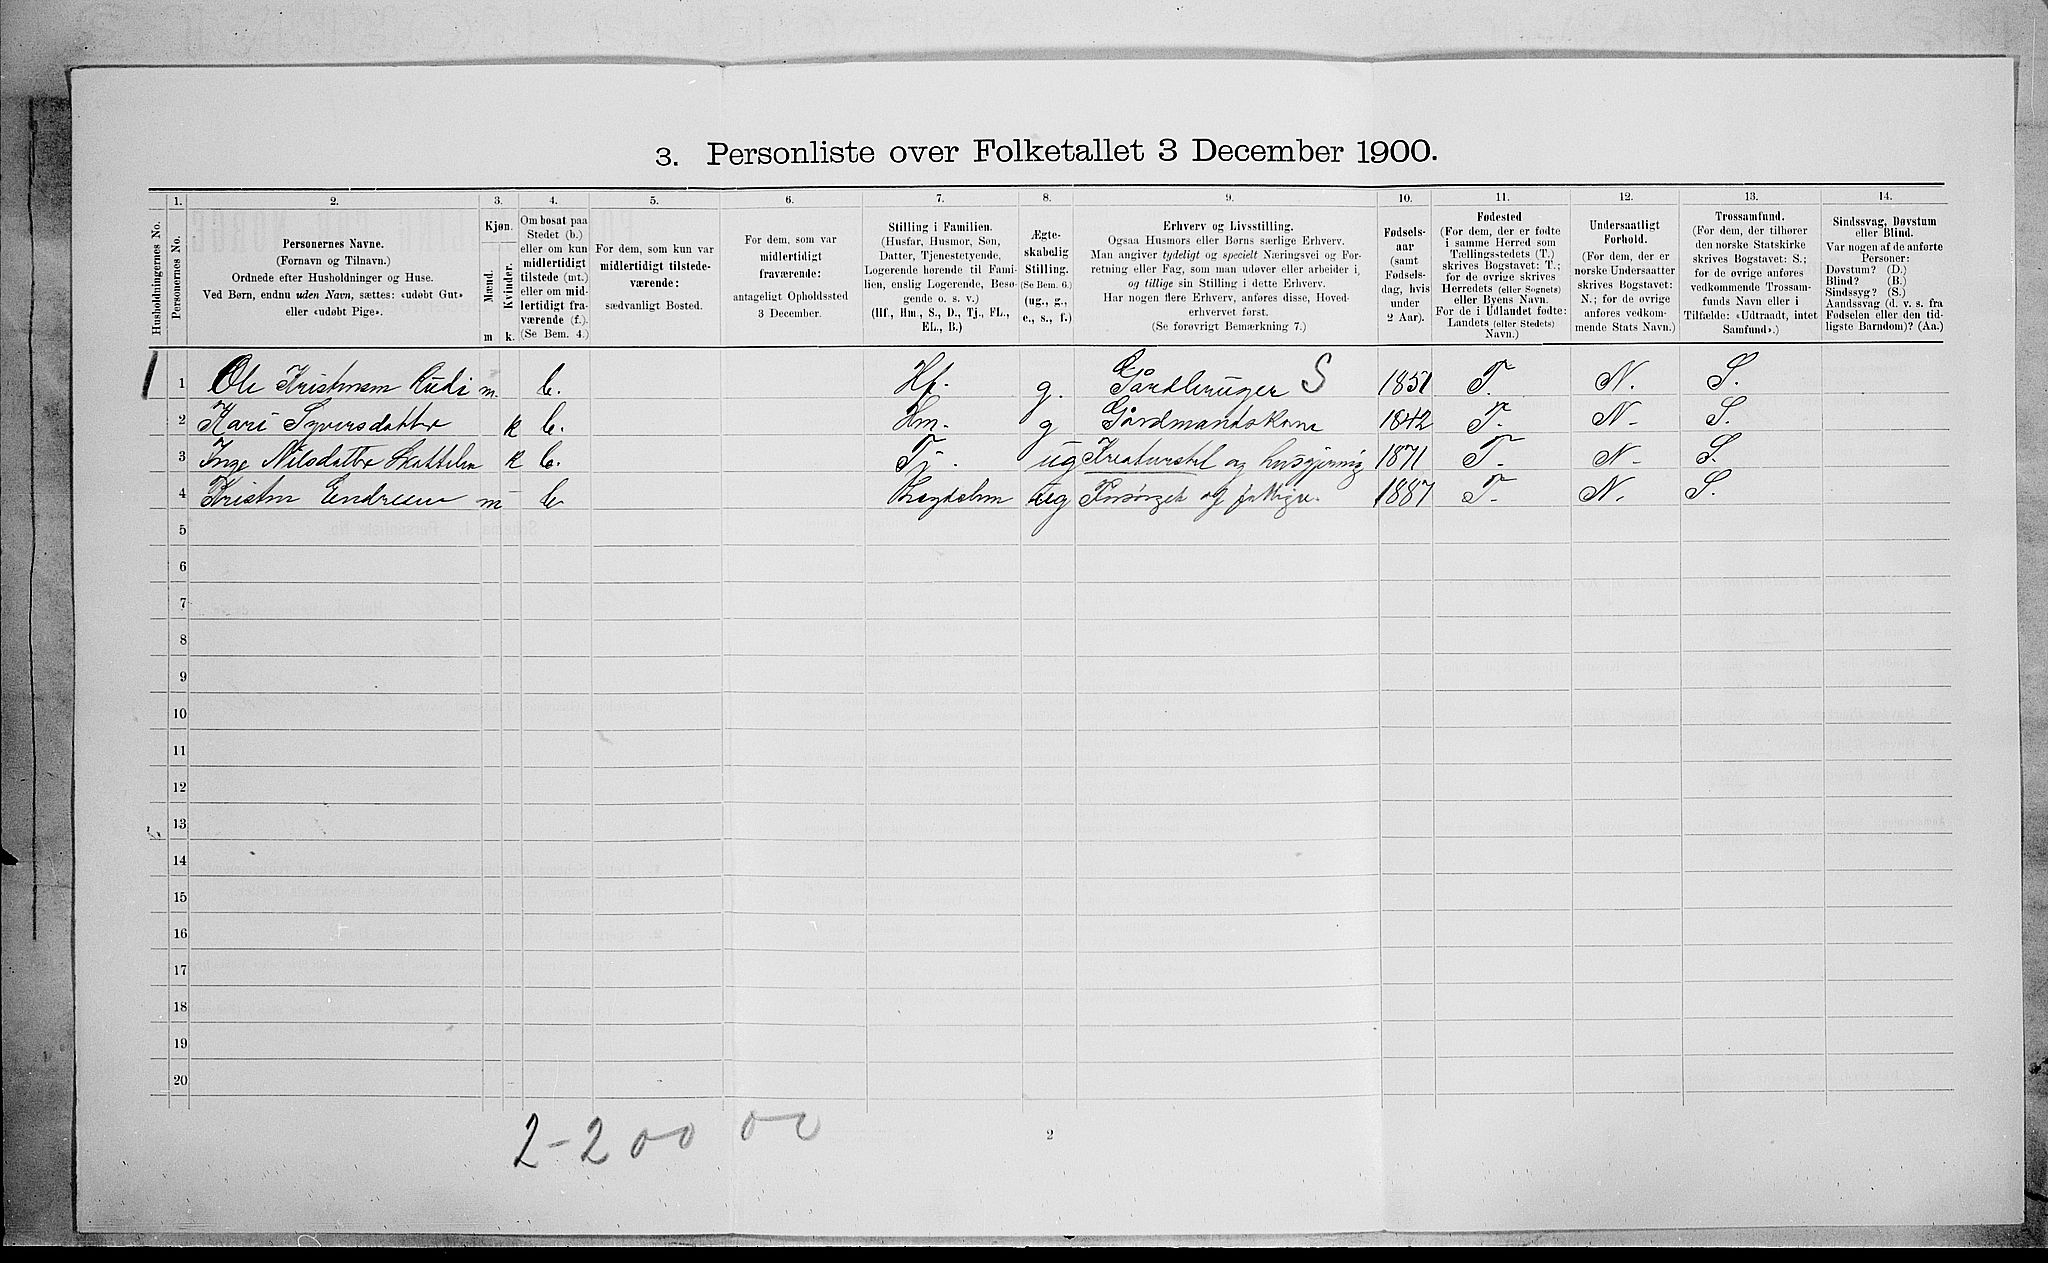 3. Personliste over Folketallet 3 December 1900.
1. 2. 3. 4. 5. 6. 7. 8. 9. 10. 11. 12. 13. 14.
Husholdningernes No.
Personernes No.
Personernes Navne.
(Fornavn og Tilnavn.)
Ordnede efter Husholdninger og Huse.
Ved Børn, endnu uden Navn, sættes: «udøbt Gut»
eller «udøbt Pige».
Kjøn.
Mænd.
Kvinder.
m k.
Om bosat paa
Stedet (b.)
eller om kun
midlertidigt
tilstede (mt.)
eller om mid-
lertidigt fra-
værende (f.).
(Se Bem. 4.)
For dem, som kun var
midlertidigt tilstede-
værende:
sædvanligt Bosted.
For dem, som var
midlertidigt
fraværende:
antageligt Opholdssted
3 December.
Stilling i Familien.
(Husfar, Husmor, Søn,
Datter, Tjenestetyende,
Logerende hørende til Fami-
lien, enslig Logerende, Besø-
gende o. s. v.)
(Hf., Hm., S., D., Tj., FL.,
EL., B.)
Ægte-
skabelig
Stilling.
(Se Bem. 6.)
(ug., g.,
e., s., f.)
Erhverv og Livsstilling.
Ogsaa Husmors eller Børns særlige Erhverv.
Man angiver tydeligt og specielt Næringsvei og For-
retning eller Fag, som man udøver eller arbeider i,
og tillige sin Stilling i dette Erhverv.
Har nogen flere Erhverv, anføres disse, Hoved-
erhvervet først.
(Se forøvrigt Bemærkning 7.)
Fødsels-
aar
(samt
Fødsels-
dag, hvis
under
2 Aar).
Fødested
(For dem, der er fødte
i samme Herred som
Tællingsstedets (T.)
skrives Bogstavet: T.;
for de øvrige skrives
Herredets (eller Sognets)
eller Byens Navn.
For de i Udlandet fødte:
Landets (eller Stedets)
Navn.)
Undersaatligt
Forhold.
(For dem, der er
norske Undersaatter
skrives Bogstavet:
N.; for de øvrige
anføres vedkom-
mende Stats Navn.)
Trossamfund.
(For dem, der tilhører
den norske Statskirke
skrives Bogstavet: S.;
for de øvrige anføres
vedkommende Trossam-
funds Navn eller i
Tilfælde: «Udtraadt, intet
Samfund».)
Sindssvag, Døvstum
eller Blind.
Var nogen af de anførte
Personer:
Døvstum? (D.)
Blind? (B.)
Sindssyg? (S.)
Aandssvag (d. v. s. fra
Fødselen eller den tid-
ligste Barndom)? (Aa.)
1 1 Ole Kristensen Rudi m. b. Hf. g. Gårdbruger S 1851 T. N. S.
2 Kari Syversdatter k b. Hm. g Gårdmandskone 1842 T. N. S.
3 Inge Nilsdatter k b. Tj. ug Kreaturstel og husgjerning 1871 T. N. S.
4 Kristen Endresen m b ug Forsørget af fattigv. 1887 T. N. S.
5
6
7
8
9
10
11
12
13
14
15
16
17
18
19
20
2-2 00 00
2